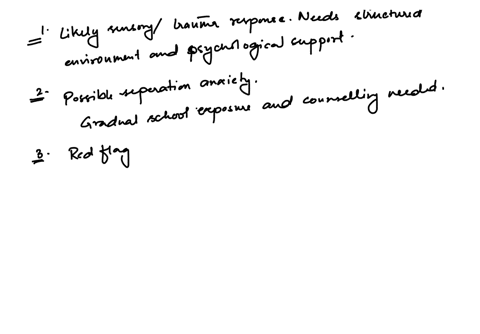 1. Likely sensory/ trauma response. Needs structured
environment and psychological support.
2. Possible seperation anxiety.
Gradual school exposure and counselling needed.
3. Red flag